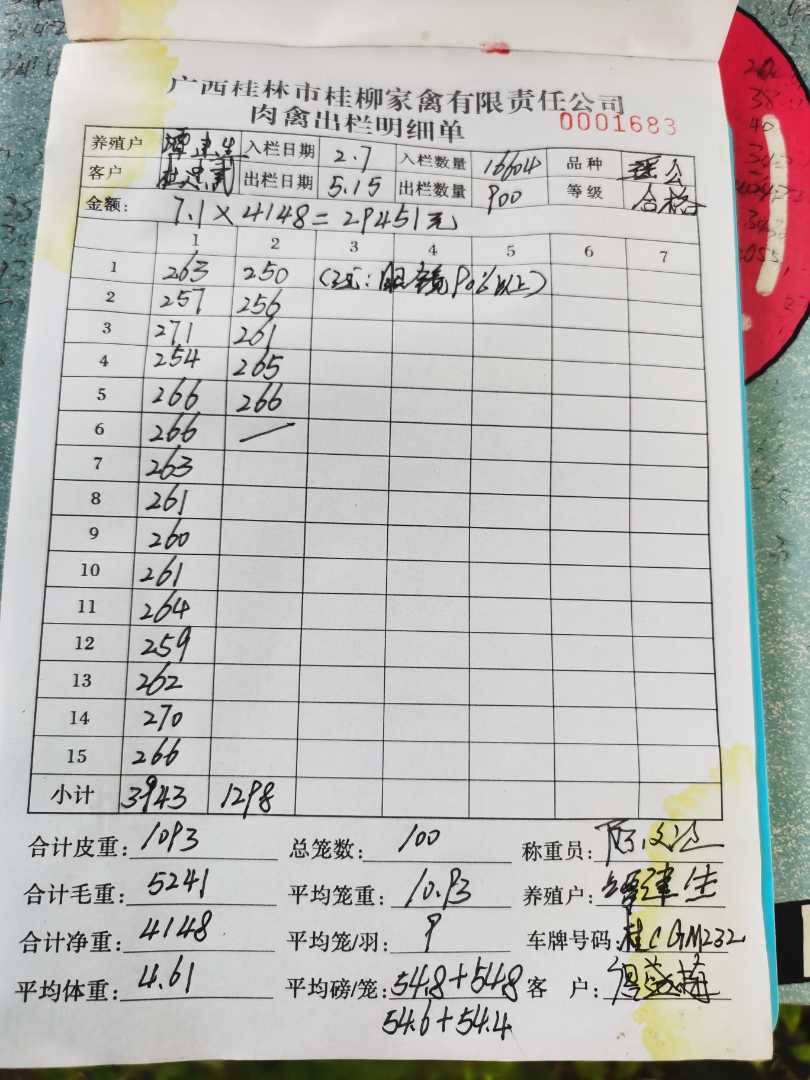 广西桂林市桂柳家禽有限责任公司
肉禽出栏明细单 0001683
养殖户 入栏日期 2.7 入栏数量 16604 品种
客户 出栏日期 5.15 出栏数量 900 等级 合格
金额: 7.1×4148=29451元
1 2 3 4 5 6 7
1 263 250 90%以上)
2 257 256
3 271 261
4 254 265
5 266 266
6 266 —
7 263
8 261
9 260
10 261
11 264
12 259
13 262
14 270
15 266
小计 3943 1298
合计皮重: 1093 总笼数: 100 称重员:
合计毛重: 5241 平均笼重: 10.93 养殖户: 建生
合计净重: 4148 平均笼/羽: 9 车牌号码: 桂CGM232
平均体重: 4.61 平均磅/笼: 54.8+54.8 客户:
54.6+54.4